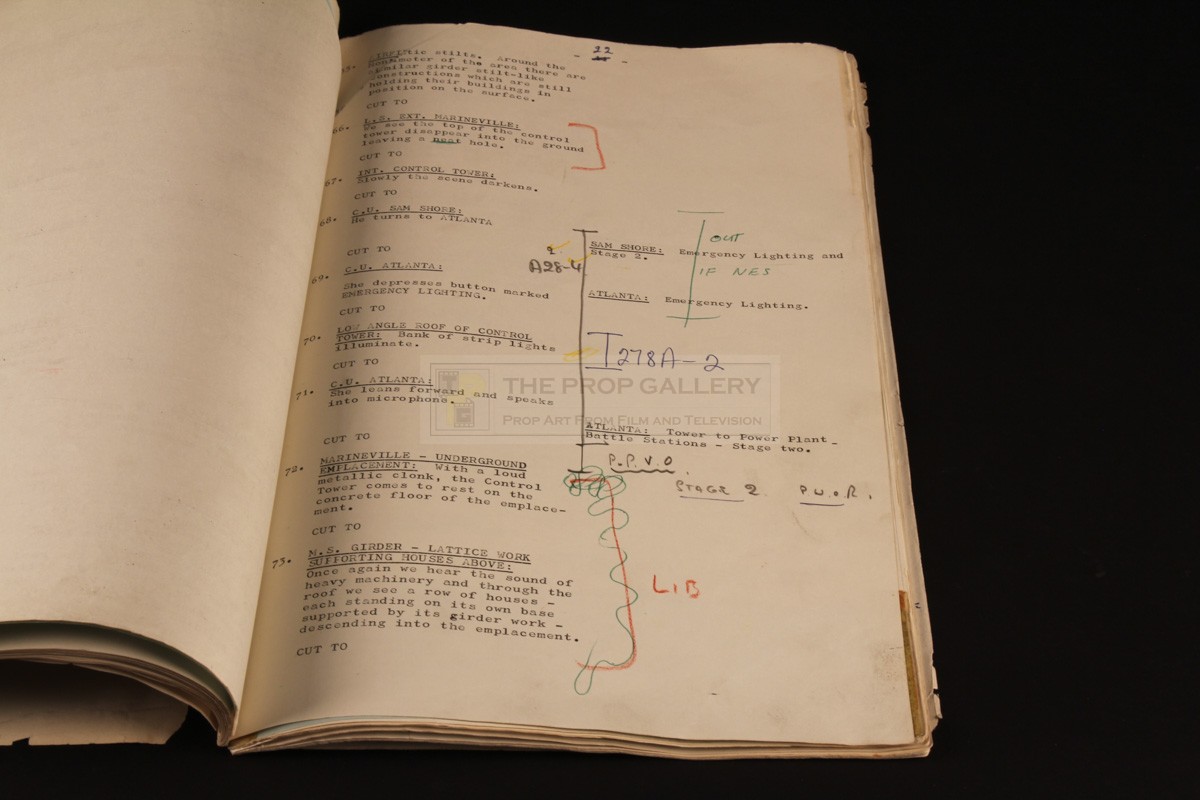 - 22 -
stilts. Around the
of the area there are
similar girder stilt-like
constructions which are still
holding their buildings in
position on the surface.
CUT TO
66. L.S. EXT. MARINEVILLE:
We see the top of the control
tower disappear into the ground
leaving a neat hole.
CUT TO
67. INT. CONTROL TOWER:
Slowly the scene darkens.
CUT TO
68. C.U. SAM SHORE:
He turns to ATLANTA
SAM SHORE: Emergency Lighting and
Stage 2.
OUT
IF NES
A28-4
CUT TO
69. C.U. ATLANTA:
She depresses button marked
EMERGENCY LIGHTING.
ATLANTA: Emergency Lighting.
CUT TO
70. LOW ANGLE ROOF OF CONTROL
TOWER: Bank of strip lights
illuminate.
278A-2
CUT TO
71. C.U. ATLANTA:
She leans forward and speaks
into microphone.
THE PROP GALLERY
PROP ART FROM FILM AND TELEVISION
ATLANTA: Tower to Power Plant -
Battle Stations - Stage two.
CUT TO
P.P.V.O.
STAGE 2 P.W.O.R.
72. MARINEVILLE - UNDERGROUND
EMPLACEMENT: With a loud
metallic clonk, the Control
Tower comes to rest on the
concrete floor of the emplace-
ment.
CUT TO
73. M.S. GIRDER - LATTICE WORK
SUPPORTING HOUSES ABOVE:
Once again we hear the sound of
heavy machinery and through the
roof we see a row of houses -
each standing on its own base
supported by its girder work -
descending into the emplacement.
LIB
CUT TO